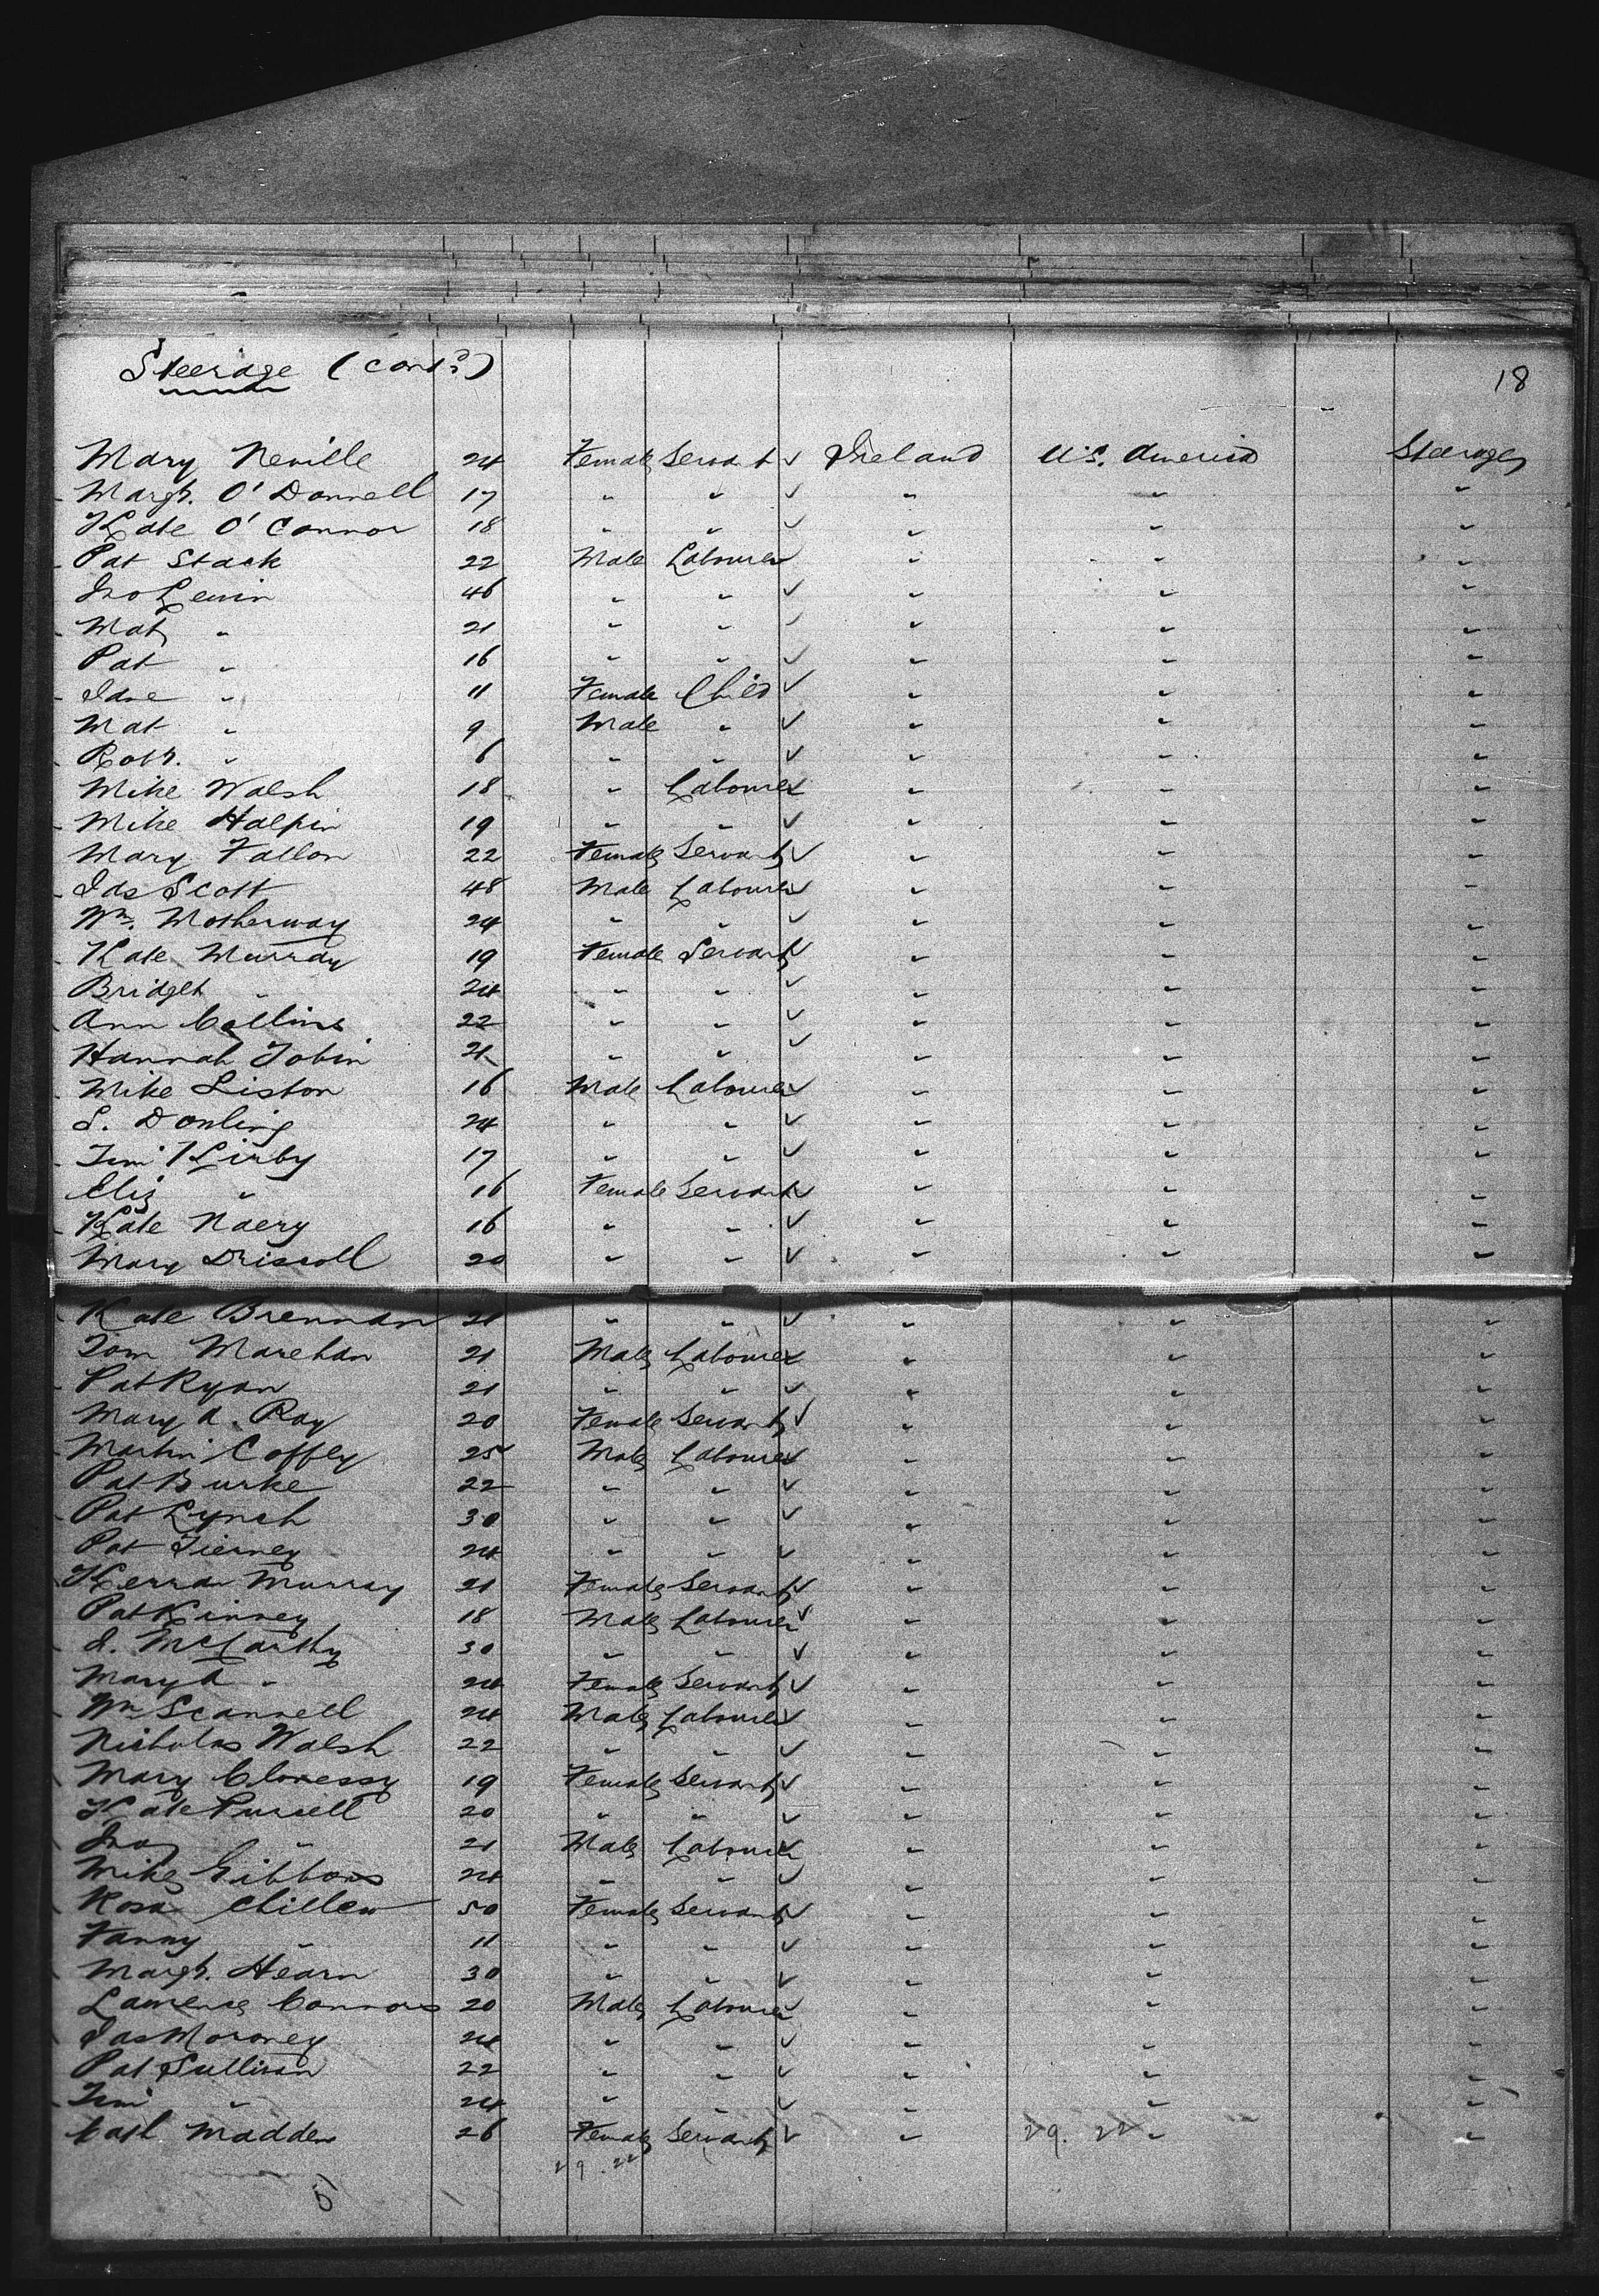 Steerage (contd)
18
Mary Neville 24 Female Servant ✓ Ireland U.S. America Steerage
Margt. O'Donnell 17 " " ✓ " " "
Kate O'Connor 18 " " ✓ " " "
Pat Stack 22 Male Labourer ✓ " " "
Jno 46 " " ✓ " " "
Mat " 21 " " ✓ " " "
Pat " 16 " " ✓ " " "
" 11 Female Child ✓ " " "
Mat " 9 Male " ✓ " " "
Robt. " 6 " " ✓ " " "
Mike Walsh 18 " Labourer ✓ " " "
Mike Halpin 19 " " ✓ " " "
Mary Fallon 22 Female Servant ✓ " " "
Jas Scott 48 Male Labourer ✓ " " "
Wm. Motherway 24 " " ✓ " " "
Kate Murray 19 Female Servant ✓ " " "
Bridget " 24 " " ✓ " " "
Ann Collins 22 " " ✓ " " "
Hannah Tobin 21 " " ✓ " " "
Mike Liston 16 Male Labourer ✓ " " "
S. Donling 24 " " ✓ " " "
Tim Kirby 17 " " ✓ " " "
Eliz " 16 Female Servant ✓ " " "
Kate Naery 16 " " ✓ " " "
Mary Driscoll 20 " " ✓ " " "
Kate Brennan 21 " " ✓ " " "
Tom Marehan 21 Male Labourer ✓ " " "
Pat Ryan 21 " " ✓ " " "
Mary A. Ray 20 Female Servant ✓ " " "
Martin Coffey 25 Male Labourer ✓ " " "
Pat Burke 22 " " ✓ " " "
Pat Lynch 30 " " ✓ " " "
Pat Tierney 24 " " ✓ " " "
Murray 21 Female Servant ✓ " " "
Pat Kinney 18 Male Labourer ✓ " " "
J. McCarthy 30 " " ✓ " " "
Mary A " 24 Female Servant ✓ " " "
Wm Scannell 24 Male Labourer ✓ " " "
Nicholas Walsh 22 " " ✓ " " "
Mary Clonessy 19 Female Servant ✓ " " "
Kate Pursell 20 " " ✓ " " "
Jno " 21 Male Labourer ✓ " " "
Mike Gibbons 24 " " ✓ " " "
Rosa 50 Female Servant ✓ " " "
Fanny " 11 " " ✓ " " "
Margt. Hearn 30 " " ✓ " " "
Lawrence Connors 20 Male Labourer ✓ " " "
Jas Moroney 24 " " ✓ " " "
Pat Sullivan 22 " " ✓ " " "
Tim " 24 " " ✓ " " "
Cath Madden 26 Female Servant ✓ " 29. 22 " "
29. 22
5